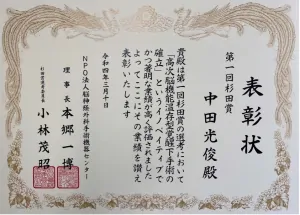 表彰状
第一回杉田賞
中田光俊殿
貴殿は第一回杉田賞の選考において
「高次脳機能温存型覚醒下手術の
確立」というイノベイティブで
かつ著明な業績が高く評価されました
よってここにその業績を讃え
表彰いたします
令和四年三月十日
NPO法人脳神経外科手術機器センター
理事長 本郷一博
小林茂昭